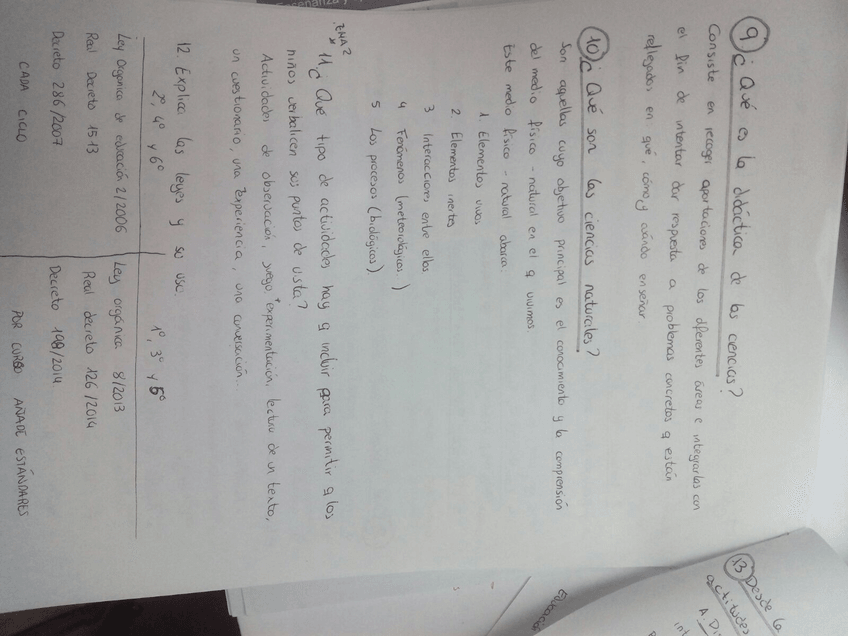 9 ¿Qué es la didáctica de las ciencias?
Consiste en recoger aportaciones de las diferentes áreas e integrarlas con
el fin de intentar dar respuesta a problemas concretos q están
reflejados en qué, cómo y cuándo enseñar.
10 ¿Qué son las ciencias naturales?
Son aquellas cuyo objetivo principal es el conocimiento y la comprensión
del medio físico-natural en el q vivimos.
Este medio físico-natural abarca.
1. Elementos vivos
2 Elementos inertes
3 Interacciones entre ellos
4 Fenómenos (meteorológicos)
5 Los procesos (biológicos)
* 11 ¿Qué tipo de actividades hay q incluir para permitir a los
niños verbalicen sus puntos de vista?
Actividades de observación, juego, experimentación, lectura de un texto,
un cuestionario, una experiencia, una conversación.
12. Explica las leyes y su uso.
2º, 4º y 6º
1º, 3º y 5º
Ley Organica de educación 2/2006
Ley orgánica 8/2013
Real Decreto 1513
Real decreto 126/2014
Decreto 286/2007
Decreto 198/2014
CADA CICLO
POR CURSO AÑADE ESTÁNDARES
13 Desde la
actitudes
A. Di